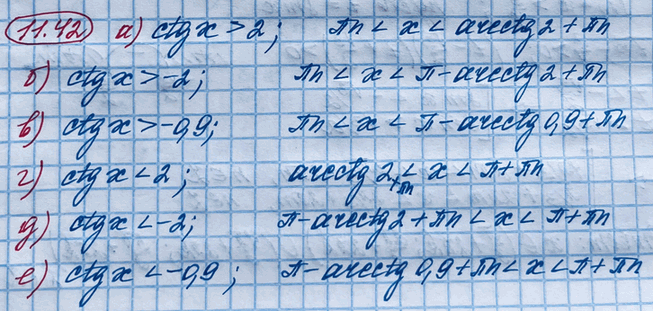 11.42 а) ctg x > 2; πn < x < arcctg 2 + πn
б) ctg x > -2; πn < x < π - arcctg 2 + πn
в) ctg x > -0,9; πn < x < π - arcctg 0,9 + πn
г) ctg x < 2; arcctg 2 + πn < x < π + πn
д) ctg x < -2; π - arcctg 2 + πn < x < π + πn
е) ctg x < -0,9; π - arcctg 0,9 + πn < x < π + πn